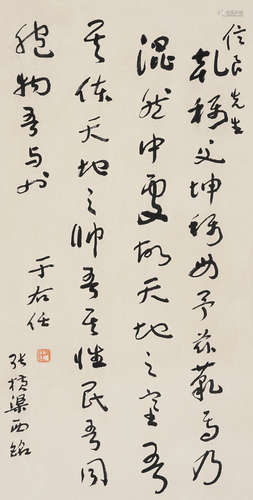 信良先生
乾稱父坤稱母予茲藐焉乃
混然中處故天地之塞吾
其体天地之帥吾其性民吾同
胞物吾与也
于右任
張橫渠西銘